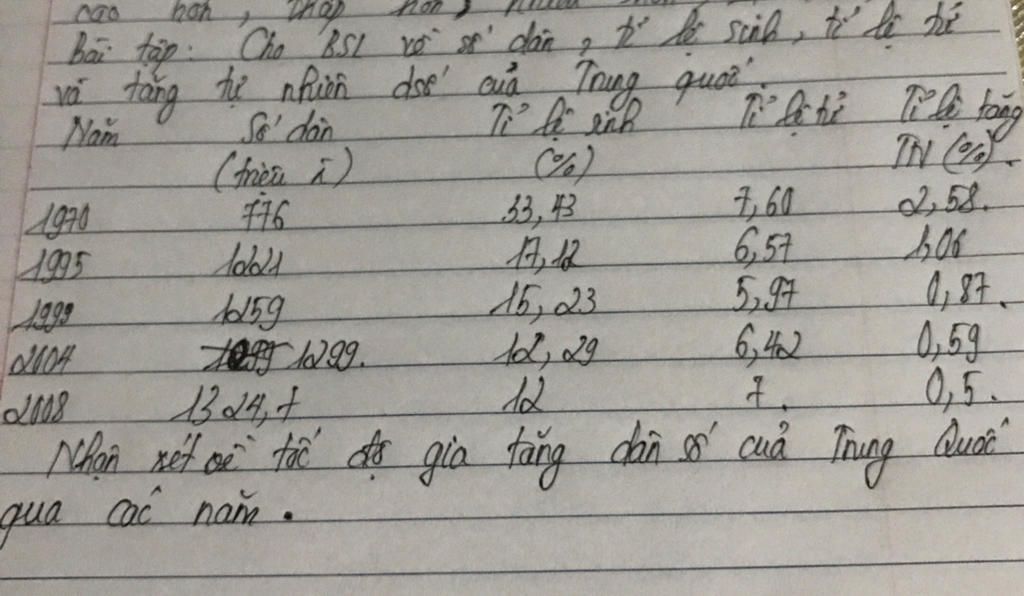 cao hơn, thấp hơn, nhiều
Bài tập: Cho BSL về số dân, tỉ lệ sinh, tỉ lệ tử
và tăng tự nhiên dsố của Trung quốc.
Năm Số dân Tỉ lệ sinh Tỉ lệ tử Tỉ lệ tăng
(triệu n) (%) TN (%).
1970 776 33,43 7,60 2,58.
1995 1221 17,12 6,57 1,06
1999 1259 15,23 5,97 0,87.
2004 1299. 12,29 6,42 0,59
2008 1324,7 12 7. 0,5.
Nhận xét về tốc độ gia tăng dân số của Trung Quốc
qua các năm.